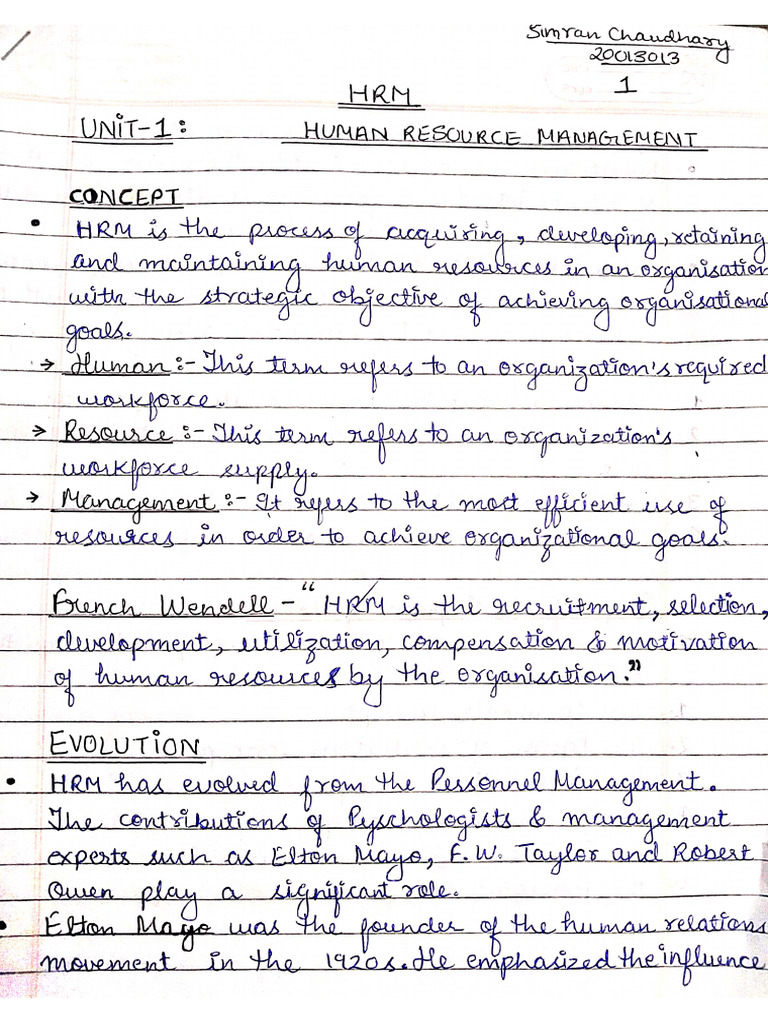 Simran Chaudhary
20013013
1
HRM
UNIT-1: HUMAN RESOURCE MANAGEMENT
CONCEPT
• HRM is the process of acquiring, developing, retaining
and maintaining human resources in an organisation
with the strategic objective of achieving organisational
goals.
→ Human :- This term refers to an organization's required
workforce.
→ Resource :- This term refers to an organization's
workforce supply.
→ Management :- It refers to the most efficient use of
resources in order to achieve organizational goals.
French Wendell - "HRM is the recruitment, selection,
development, utilization, compensation & motivation
of human resources by the organisation."
EVOLUTION
• HRM has evolved from the Personnel Management.
The contributions of Pyschologists & management
experts such as Elton Mayo, F.W. Taylor and Robert
Owen play a significant role.
• Elton Mayo was the founder of the human relations
movement in the 1920s. He emphasized the influence